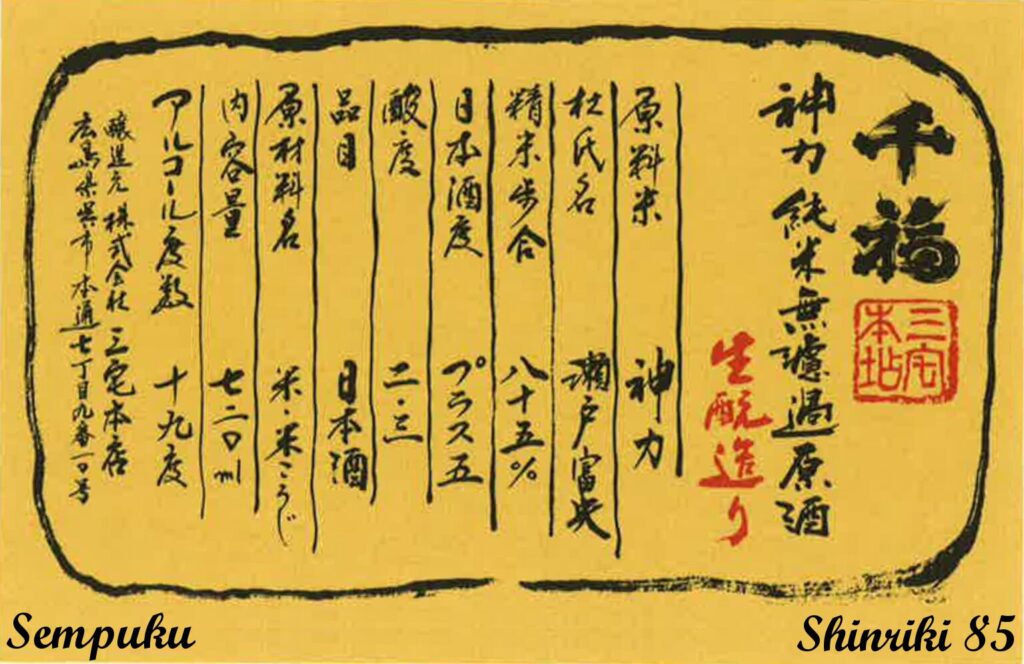 千福
三宅
本店
神力 純米無濾過原酒
生酛造り
原料米 神力
杜氏名 瀬戸富央
精米歩合 八十五%
日本酒度 プラス五
酸度 二・三
品目 日本酒
原材料名 米・米こうじ
内容量 七二〇ml
アルコール度数 十九度
醸造元 株式会社 三宅本店
広島県呉市本通七丁目九番一〇号
Sempuku
Shinriki 85